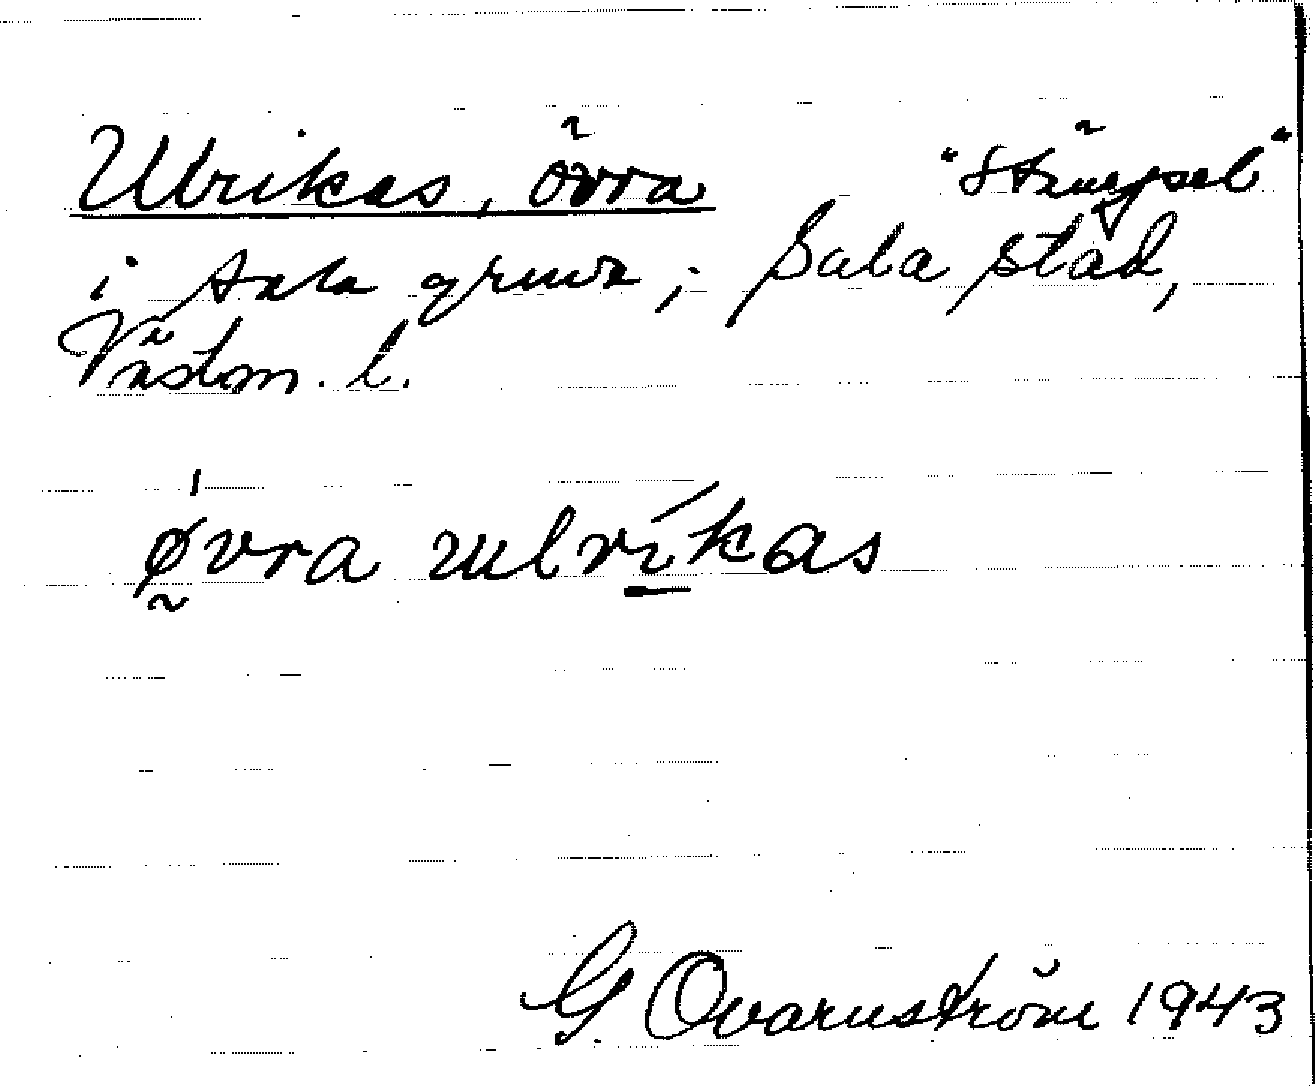 Ulrikas, övra "Stängsel"
i Sala gruva; Sala stad,
Västm. l.
øvra ulríkas
G. Qvarnström 1943